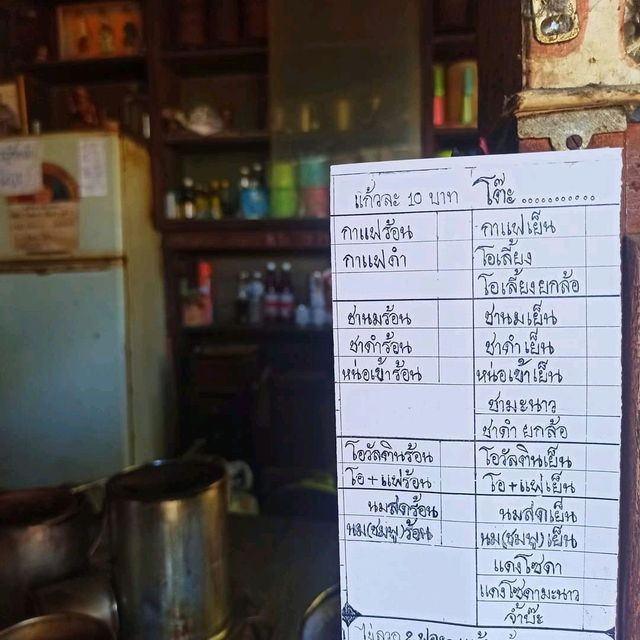 แก้วละ 10 บาท โต๊ะ ...........
กาแฟร้อน กาแฟเย็น
กาแฟดำ โอเลี้ยง
โอเลี้ยงยกล้อ
ชานมร้อน ชานมเย็น
ชาดำร้อน ชาดำเย็น
หน่อเข้าร้อน หน่อเข้าเย็น
ชามะนาว
ชาดำยกล้อ
โอวัลตินร้อน โอวัลตินเย็น
โอ+แฟร้อน โอ+แฟเย็น
นมสดร้อน นมสดเย็น
นม(ชมพู)ร้อน นม(ชมพู)เย็น
แดงโซดา
แดงโซดามะนาว
จ้ำบ๊ะ
ไข่ลวก 2 ฟอง